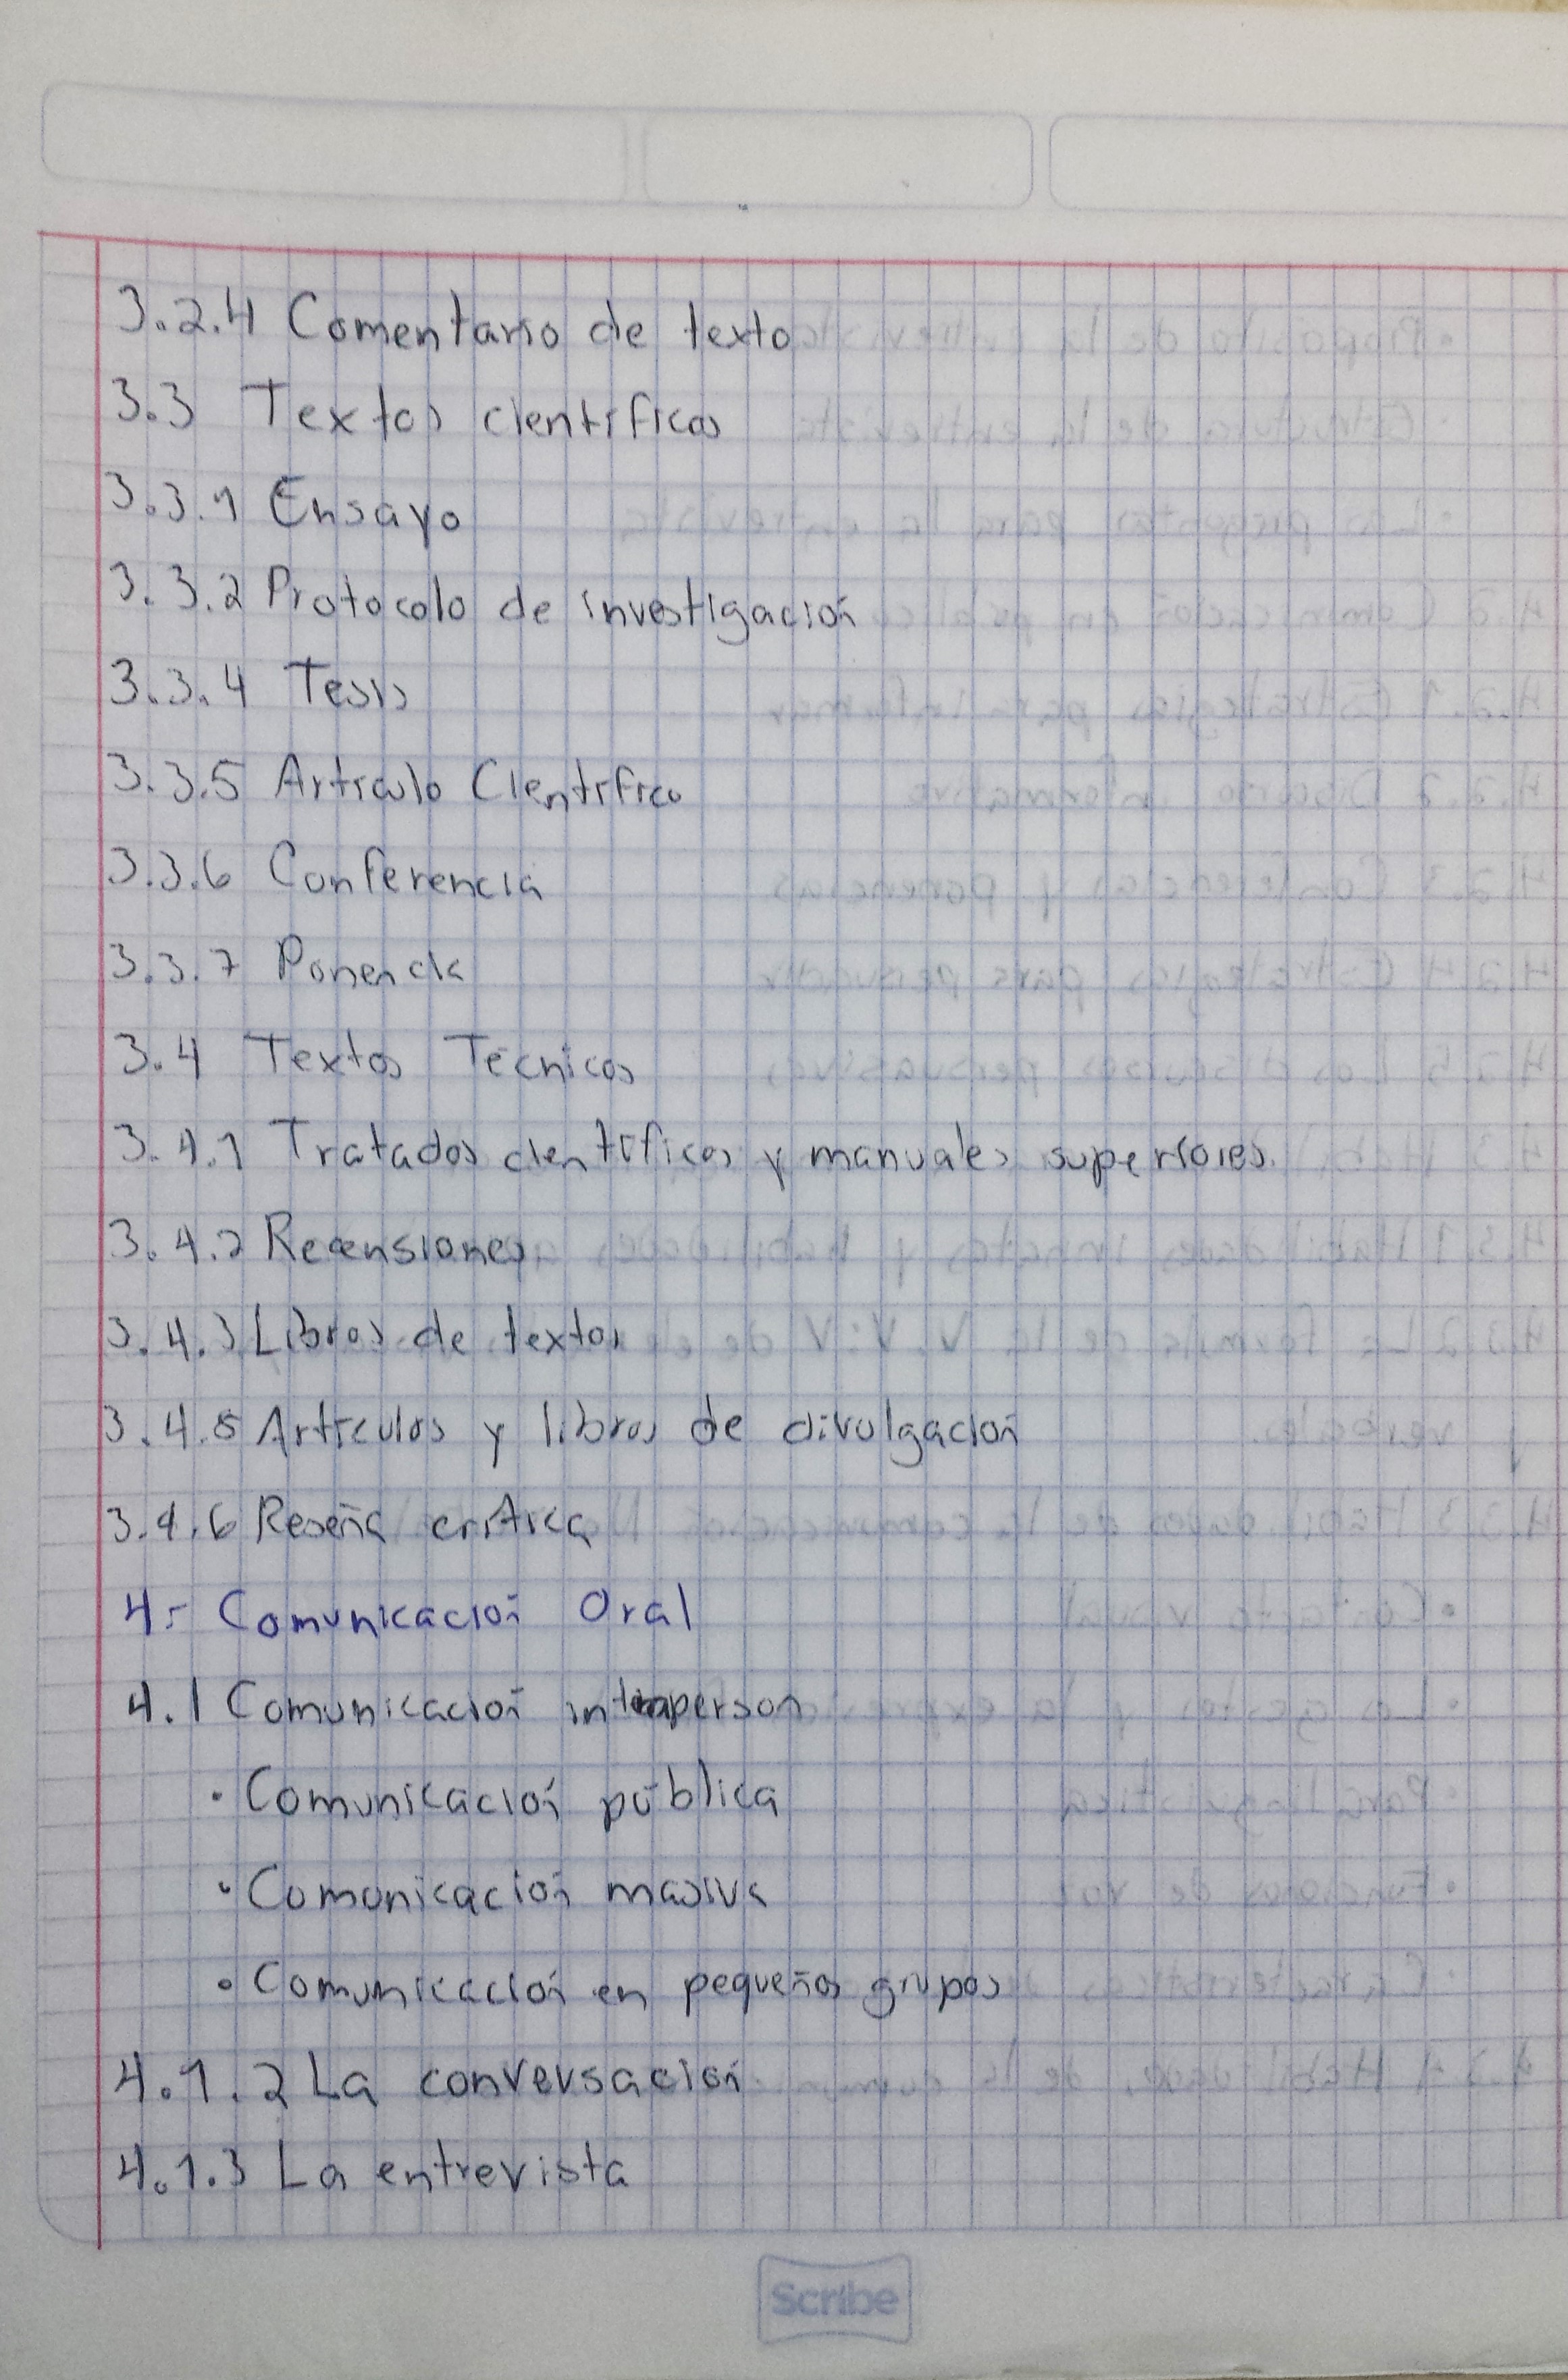 3.2.4 Comentario de texto
3.3 Textos científicos
3.3.1 Ensayo
3.3.2 Protocolo de investigación
3.3.4 Tesis
3.3.5 Artículo Científico
3.3.6 Conferencia
3.3.7 Ponencia
3.4 Textos Técnicos
3.4.1 Tratados científicos y manuales superiores.
3.4.2 Recensiones
3.4.3 Libros de textos
3.4.5 Artículos y libros de divulgación
3.4.6 Reseña crítica
4.- Comunicación Oral
4.1 Comunicación interperson
• Comunicación pública
• Comunicación masiva
• Comunicación en pequeños grupos
4.1.2 La conversación
4.1.3 La entrevista
Scribe